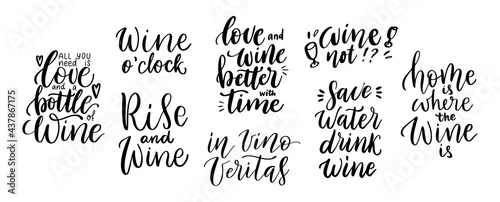 ALL YOU
need is
love
and a
bottle
of
Wine
Wine
o'clock
Rise
and
Wine
love and
wine
better
with
time
in Vino
Veritas
wine
not!?
Save
water
drink
wine
home
is
where
the
Wine
is
Adobe Stock | #437867175